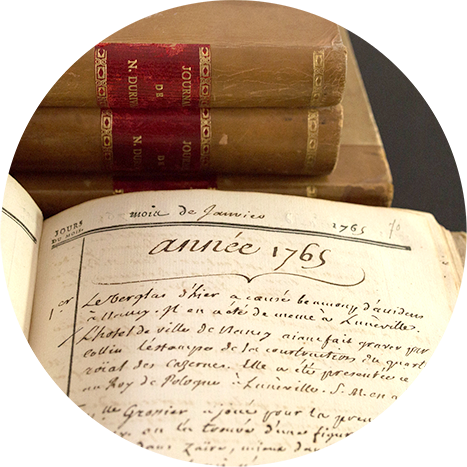 JOURN
DE
N. DURIV
JOURN
DE
N. DU
JOURS
DU MOIS.
mois de Janvier
1765
année 1765
1er Le verglas d'hier a causé beaucoup d'accidens
à Nancy. Il en a été de meme à Luneville.
L'hotel de ville de Nancy aiant fait graver par
Collin l'estampe de la construction du quart
roïal des Casernes. Elle a été presentée ce
au Roy de Pologne à Luneville. S. M. en a
Granier a joué pour la prem
on la trouve d'une figur
dans Zaïre, même da